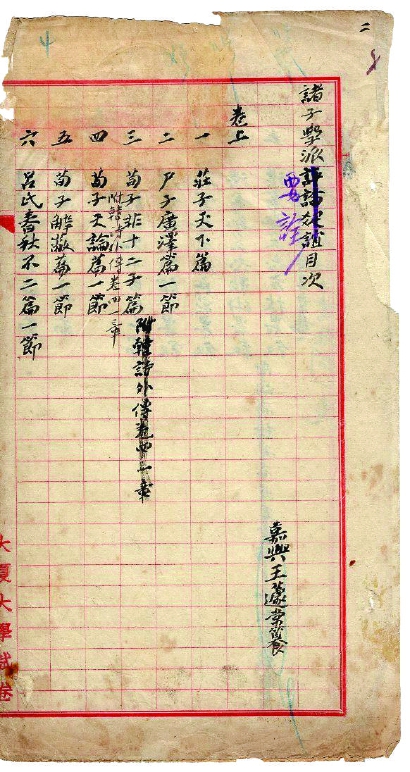 二
諸子學派目次
要詮
嘉興王蘧常纂
卷上
一 莊子天下篇
二 尸子廣澤篇一節
三 荀子非十二子篇 附韓詩外傳卷四一章
附韓詩外傳卷四一章
四 荀子天論篇一節
五 荀子解蔽篇一節
六 呂氏春秋不二篇一節
大夏大學試卷